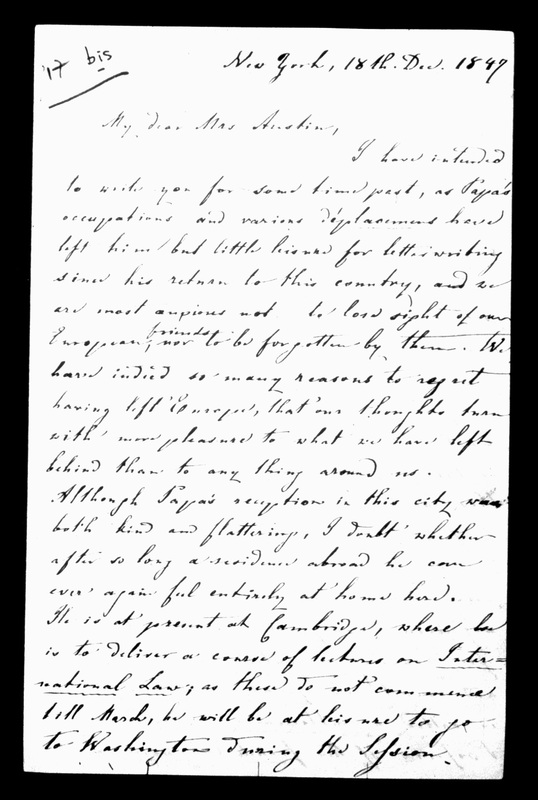 17 bis
New York, 18th. Dec. 1847
My dear Mrs Austin,
I have intended
to write you for some time past, as Papa's
occupations and various déplacemens have
left him but little leisure for letter writing
since his return to this country, and we
are most anxious not to lose sight of our
European, friends nor to be forgotten by them. We
have indeed so many reasons to regret
having left Europe, that our thoughts turn
with more pleasure to what we have left
behind than to any thing around us.
Although Papa's reception in this city was
both kind and flattering, I doubt whether
after so long a residence abroad he can
ever again feel entirely at home here.
He is at present at Cambridge, where he
is to deliver a course of lectures on Inter=
national Law; as these do not commence
till March, he will be at leisure to go
to Washington during the Session.